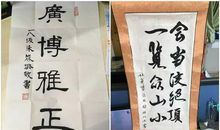 廣博雅正
會當凌絕頂
一覽众山小